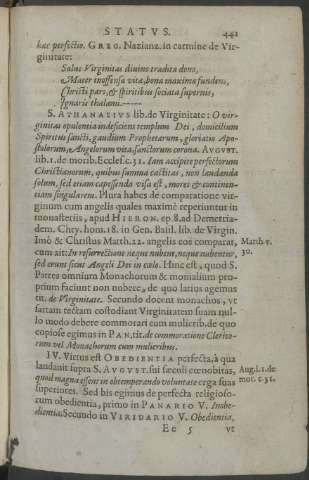 STATVS. 441
hac perfectio. GREG. Nazianz. in carmine de Vir-
ginitate:
Salue Virginitas diuino tradita dono,
Mater inoffensa vitæ, bona maxima fundens,
Christi pars, & spiritibus sociata supernis,
Ignaris thalami.-----
S. ATHANASIVS lib. de Virginitate: O vir-
ginitas opulentia indeficiens templum Dei, domicilium
Spiritus sancti, gaudium Prophetarum, gloriatio Apo-
stolorum, Angelorum vita, sanctorum corona. AVGVST.
lib. 1. de morib. Eccles. c. 31. Iam accipite perfectorum
Christianorum, quibus summa castitas, non laudanda
solum, sed etiam capessenda visa est, mores & continen-
tiam singularem. Plura habes de comparatione vir-
ginum cum angelis quales maximè reperiuntur in
monasteriis, apud HIERON. ep. 8. ad Demetria-
dem. Chry. hom. 18. in Gen. Basil. lib. de Virgin.
Imò & Christus Matth. 22. angelis eos comparat,
Matth. v.
30.
cum ait: In resurrectione neque nubent, neque nubentur,
sed erunt sicut Angeli Dei in cœlo. Hinc est, quod S.
Patres omnium Monachorum & monialium pro-
prium faciunt non nubere, de quo latius agemus
tit. de Virginitate. Secundo docent monachos, vt
sartam tectam custodiant Virginitatem suam nul-
lo modo debere commorari cum mulierib. de quo
copiose egimus in PAN. tit. de commoratione Clerico-
rum vel Monachorum cum mulieribus.
IV. Virtus est OBEDIENTIA perfecta, à qua
laudauit supra S. AVGVST. sui sæculi cœnobitas,
Aug. l. 1. de
mor. c. 31.
quod magna essent in obtemperando voluntate erga suas
superiores. Sed bis egimus de perfecta religioso-
rum obedientia, primo in PANARIO V. Inobe-
dientia. Secundo in VIRIDARIO V. Obedientia,
Ee 5 vt